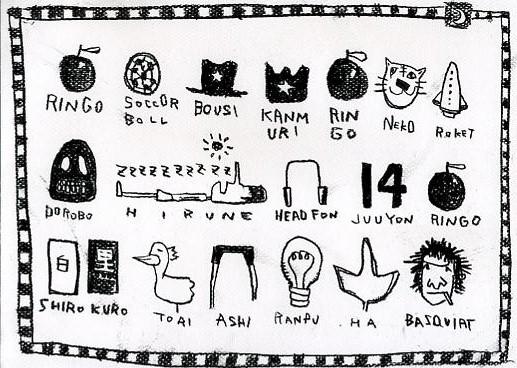 RINGO SOCCOR BOLL BOUSI KANM URI RIN GO NEKO ROKET
ZZZZZZZZZZZ 14
DOROBO HIRUNE HEADFON JUUYON RINGO
白 黒
SHIRO KURO TOAI ASHI RANPU HA BASQUIAT